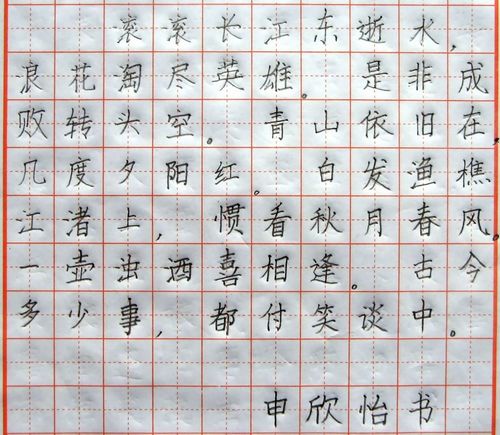 滚滚长江东逝水，
浪花淘尽英雄。是非成
败转头空。青山依旧在，
几度夕阳红。白发渔樵
江渚上，惯看秋月春风。
一壶虫酒喜相逢。古今
多少事，都付笑谈中。
申欣怡书